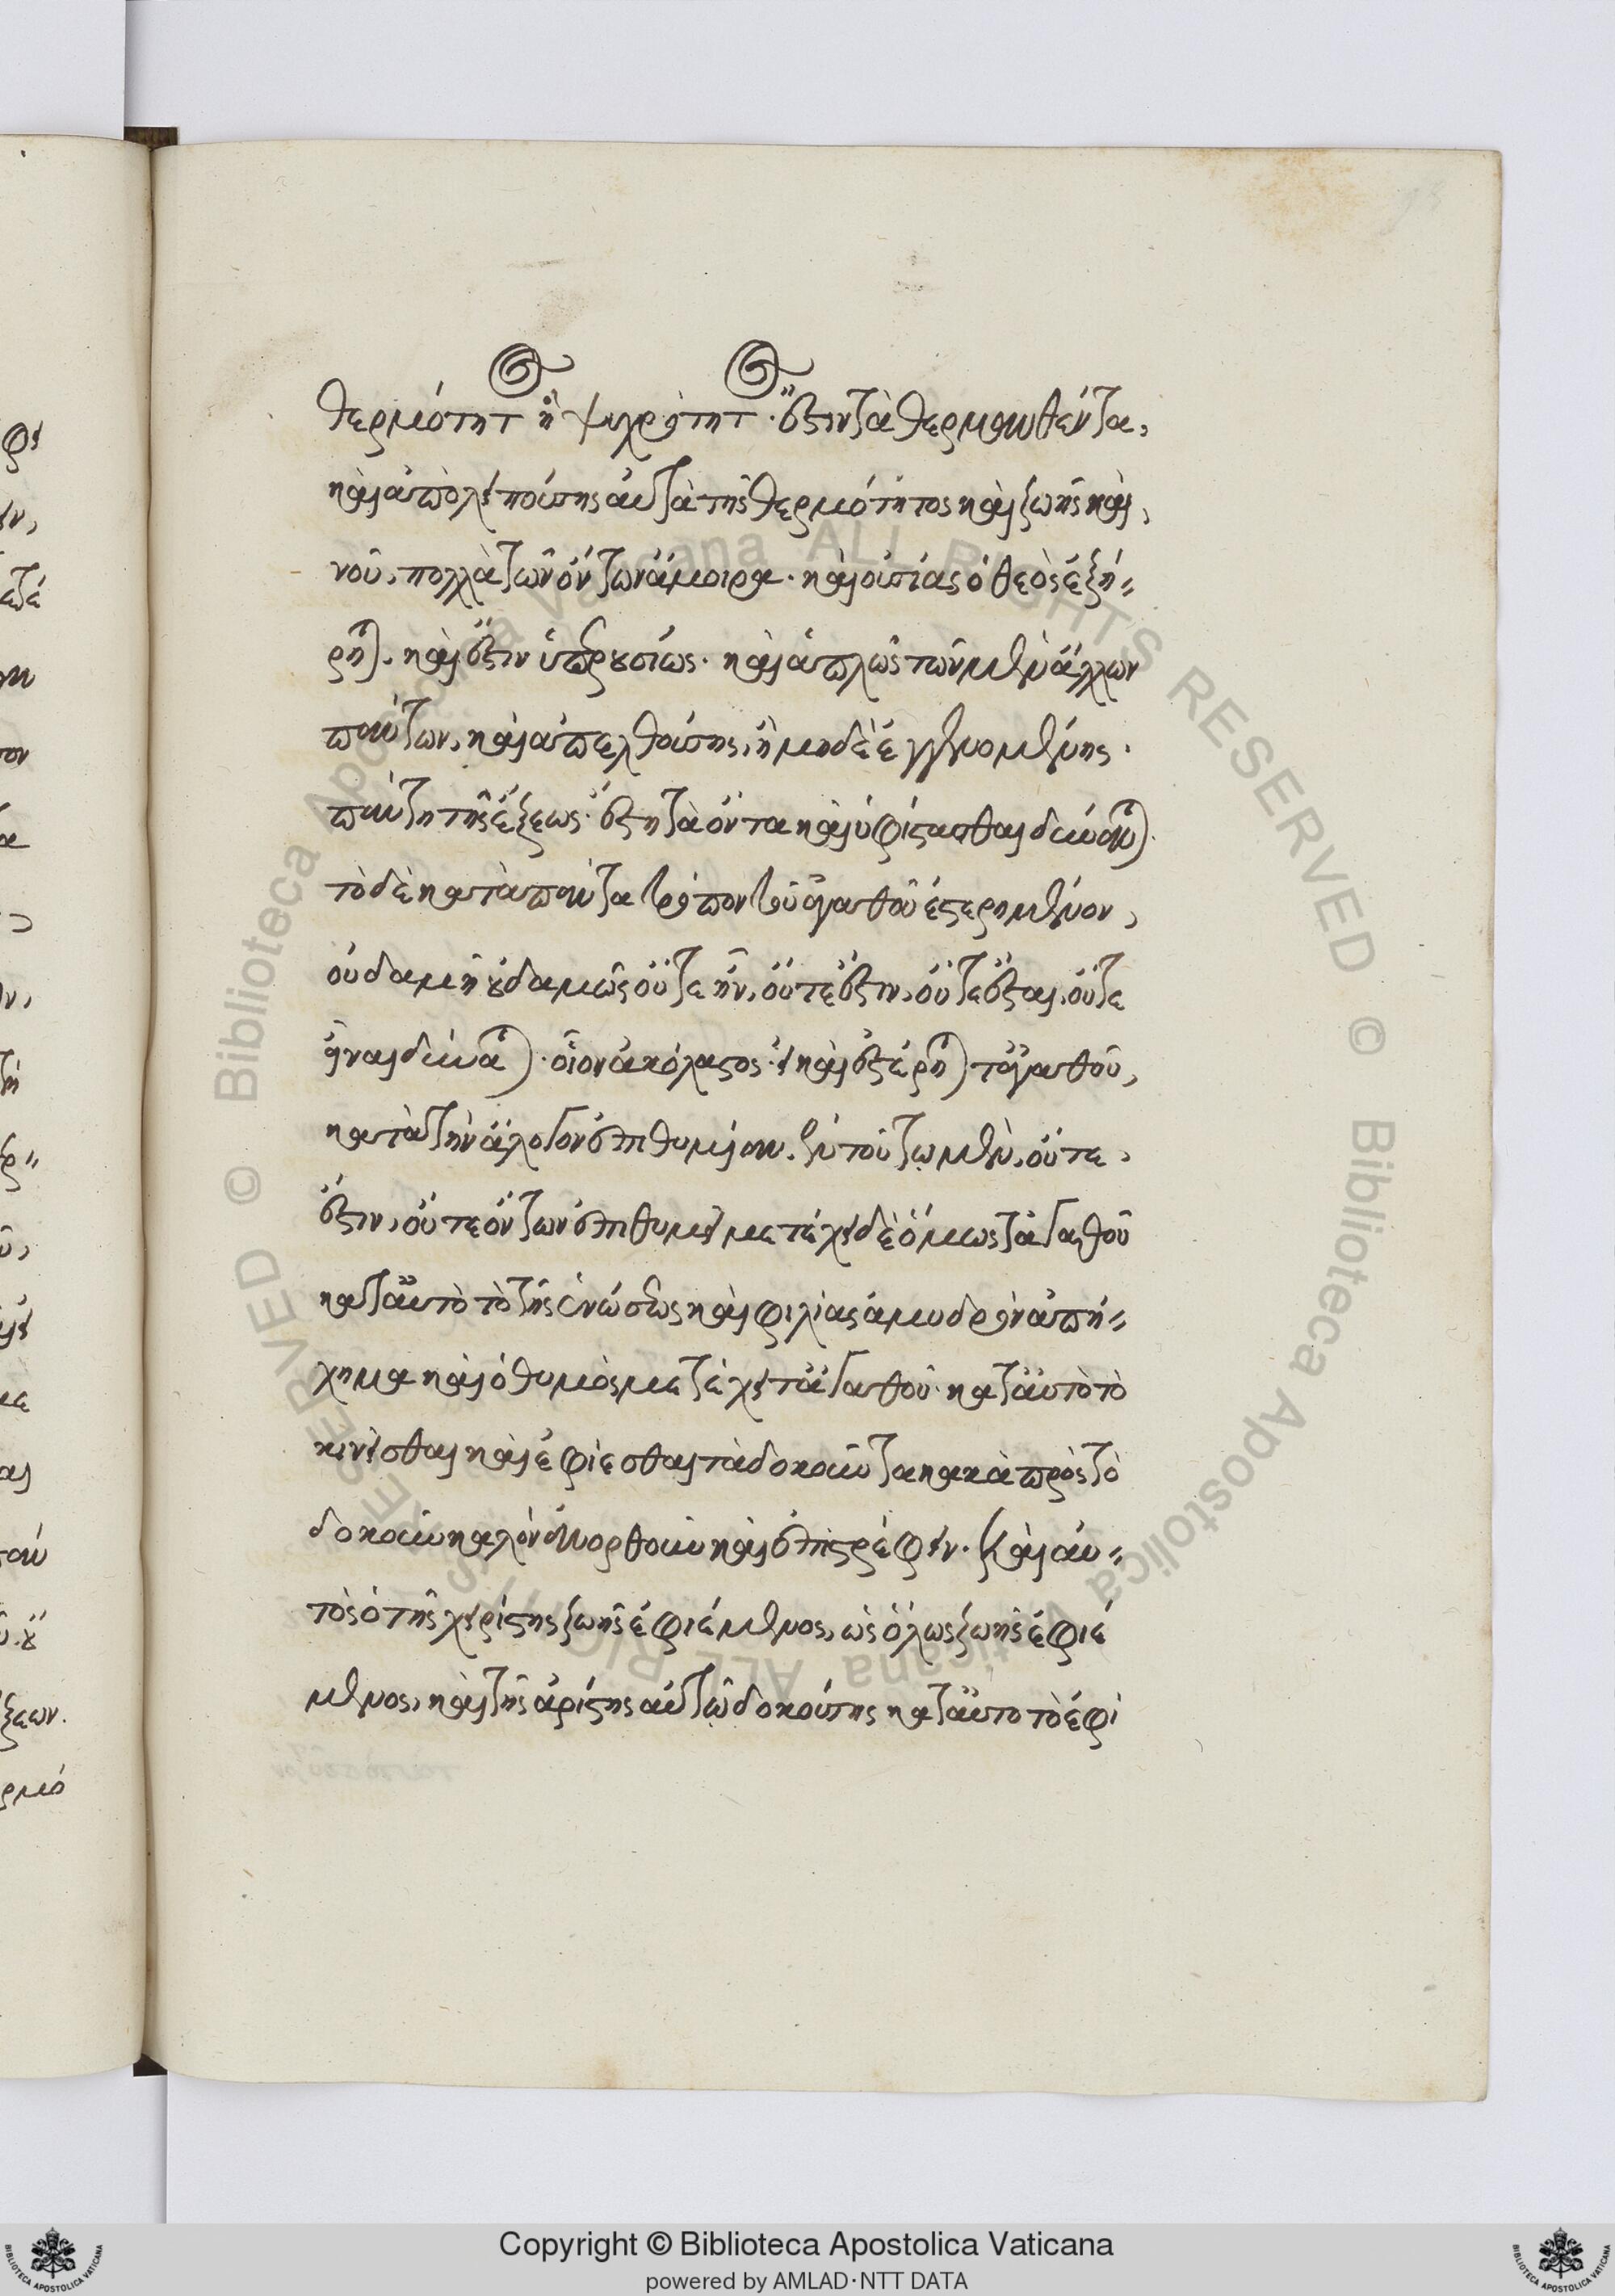 θερμότητ ἢ ψυχρότητ. ἔστιν τὰ θερμανθέντα,
καὶ ἀπολειπούσης αὐτὰ τῆς θερμότητος καὶ ζωῆς καὶ,
νοῦ, πολλὰ τῶν ὄντων ἄμοιρα. καὶ οὐσίας ὁ θεὸς ἐξή-
ρηται. καὶ ἔστιν ὑπερουσίως. καὶ ἁπλῶς τῶν μὲν ἄλλων
πάντων, καὶ ἀπελθούσης, ἢ μηδὲ ἐγγενομένης.
πάντη τῆς ἕξεως. ἔστη τὰ ὄντα καὶ ὑφίστασθαι δύναται.
τὸ δὲ κατὰ πάντα τρόπον τοῦ ἀγαθοῦ ἐστερημένον,
οὐδαμῆ οὐδαμῶς οὔτε ἦν, οὔτε ἔστιν, οὔτε ἔσται, οὔτε
εἶναι δύναται. οἷον ἀκόλαστος. εἰ καὶ ἐστέρηται τἀγαθοῦ,
κατὰ τὴν ἄλογον ἐπιθυμίαν. ἐν τούτω μὲν, οὔτε,
ἔστιν, οὔτε ὄντων ἐπιθυμεῖ μετέχει δὲ ὅμως τἀγαθοῦ
κατ' αὐτὸ τὸ τῆς ἑνώσεως καὶ φιλίας ἀμυδρὸν ἀπή-
χημα καὶ ὁ θυμὸς μετέχει τἀγαθοῦ. κατ' αὐτὸ τὸ
κινεῖσθαι καὶ ἐφίεσθαι τὰ δοκοῦντα κακὰ πρὸς τὸ
δοκοῦν καλὸν ἀνορθοῦν καὶ ἐπιστρέφειν. Καὶ αὐ-
τὸς ὁ τῆς χειρίστης ζωῆς ἐφιέμενος, ὡς ὅλως ζωῆς ἐφιέ
μενος, καὶ τῆς ἀρίστης αὐτῷ δοκούσης κατ' αὐτο τὸ ἐφί
Copyright © Biblioteca Apostolica Vaticana
powered by AMLAD·NTT DATA